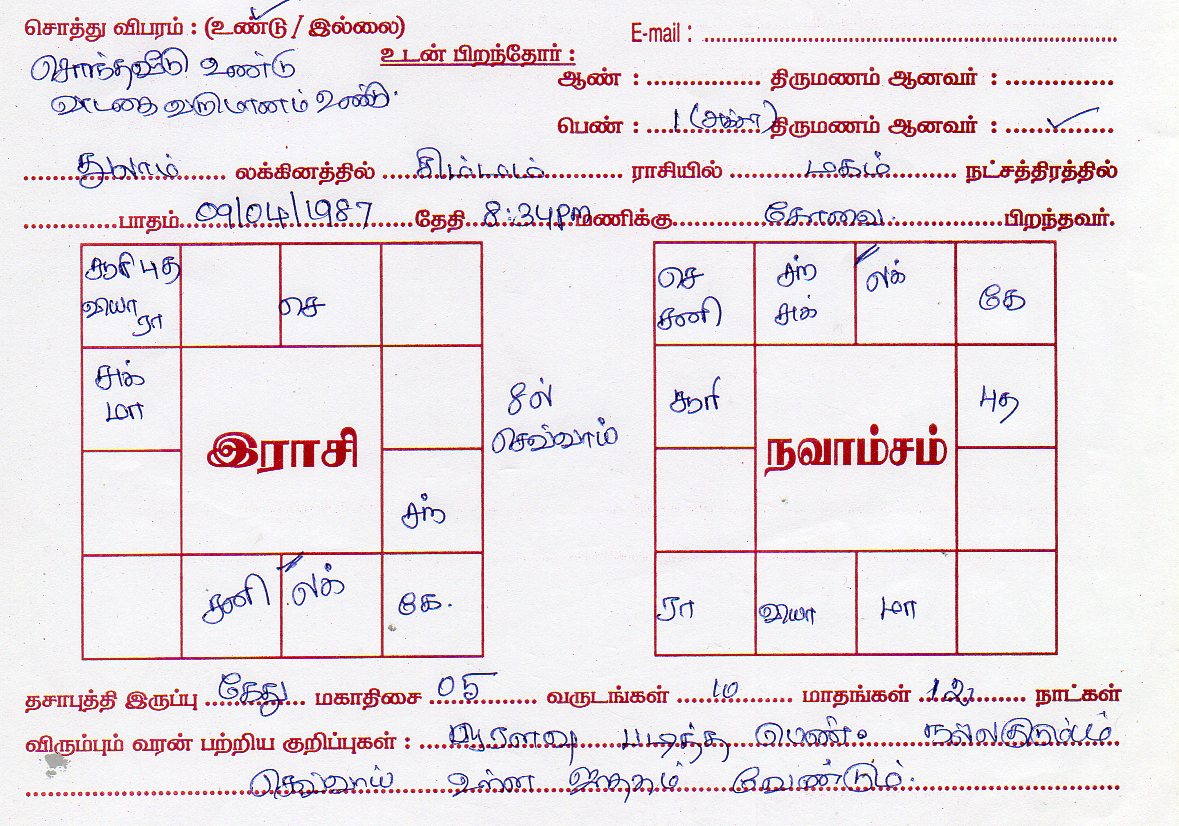 சொத்து விபரம் : (உண்டு / இல்லை)
E-mail :
சொந்தவீடு உண்டு
உடன் பிறந்தோர் :
ஆண் : திருமணம் ஆனவர் :
வாடகை வருமானம் உண்டு.
பெண் : 1 (அக்கா) திருமணம் ஆனவர் :
துலாம் லக்கினத்தில் சிம்மம் ராசியில் மகம் நட்சத்திரத்தில்
பாதம் 09/04/1987 தேதி 8:34pm மணிக்கு கோவை பிறந்தவர்.
சூரி புத
வியா
ரா
செ
சுக்
மா
இராசி
சந்
சனி
லக்
கே.
8ல்
செவ்வாய்
செ
சனி
சந்
சுக்
லக்
கே
சூரி
நவாம்சம்
புத
ரா
வியா
மா
தசாபுத்தி இருப்பு கேது மகாதிசை 05 வருடங்கள் 10 மாதங்கள் 12 நாட்கள்
விரும்பும் வரன் பற்றிய குறிப்புகள் : படித்த பெண். நல்லகுடும்பம்
செவ்வாய் உள்ள ஜாதகம் வேண்டும்.